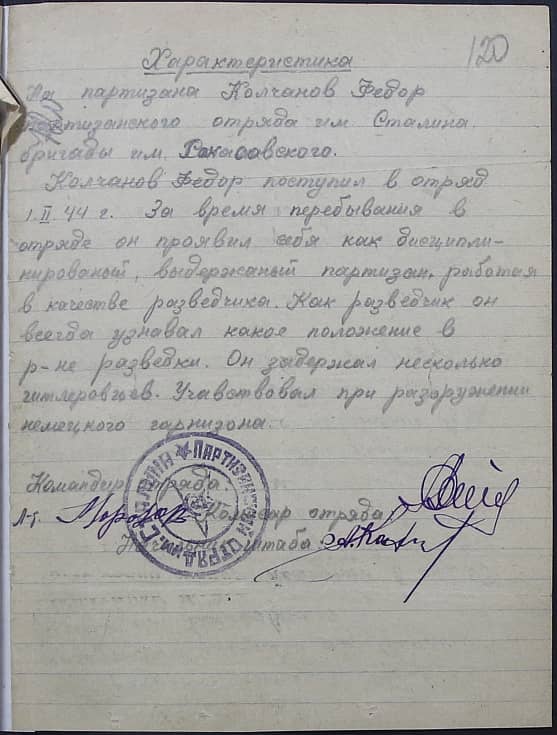 120
Характеристика
На партизана Колчанов Федор
партизанского отряда им. Сталина
бригады им. Рокасовского.
Колчанов Федор поступил в отряд
1.II 44 г. За время перебывания в
отряде он проявил себя как дисципли-
нированый, выдержаный партизан, работая
в качестве разведчика. Как разведчик он
всегда узнавал какое положение в
р-не разведки. Он задержал несколько
гитлеровцев. Учавствовал при разоружении
немецкого гарнизона.
Командир отряда
Комиссар отряда
Начальник штаба
ПАРТИЗАНСКИЙ ОТРЯД ИМ. СТАЛИНА